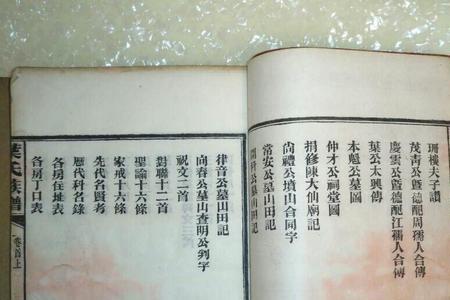 珊樓夫子讚
茂青公暨德配周孺人合傳
慶雲公暨德配江孺人合傳
葉公太興傳
本魁公墓圖
仲才公祠堂圖
捐修陳大仙廟記
尚禮公墳山合同字
常安公墓山田記
開科公墓山田記
律音公墓山田記
向春公墓山查明公判字
祝文二首
對聯十二首
聖諭十六條
家戒十六條
先代名賢考
歷代科名錄
各房住址表
各房丁口表
葉氏族譜
卷首上